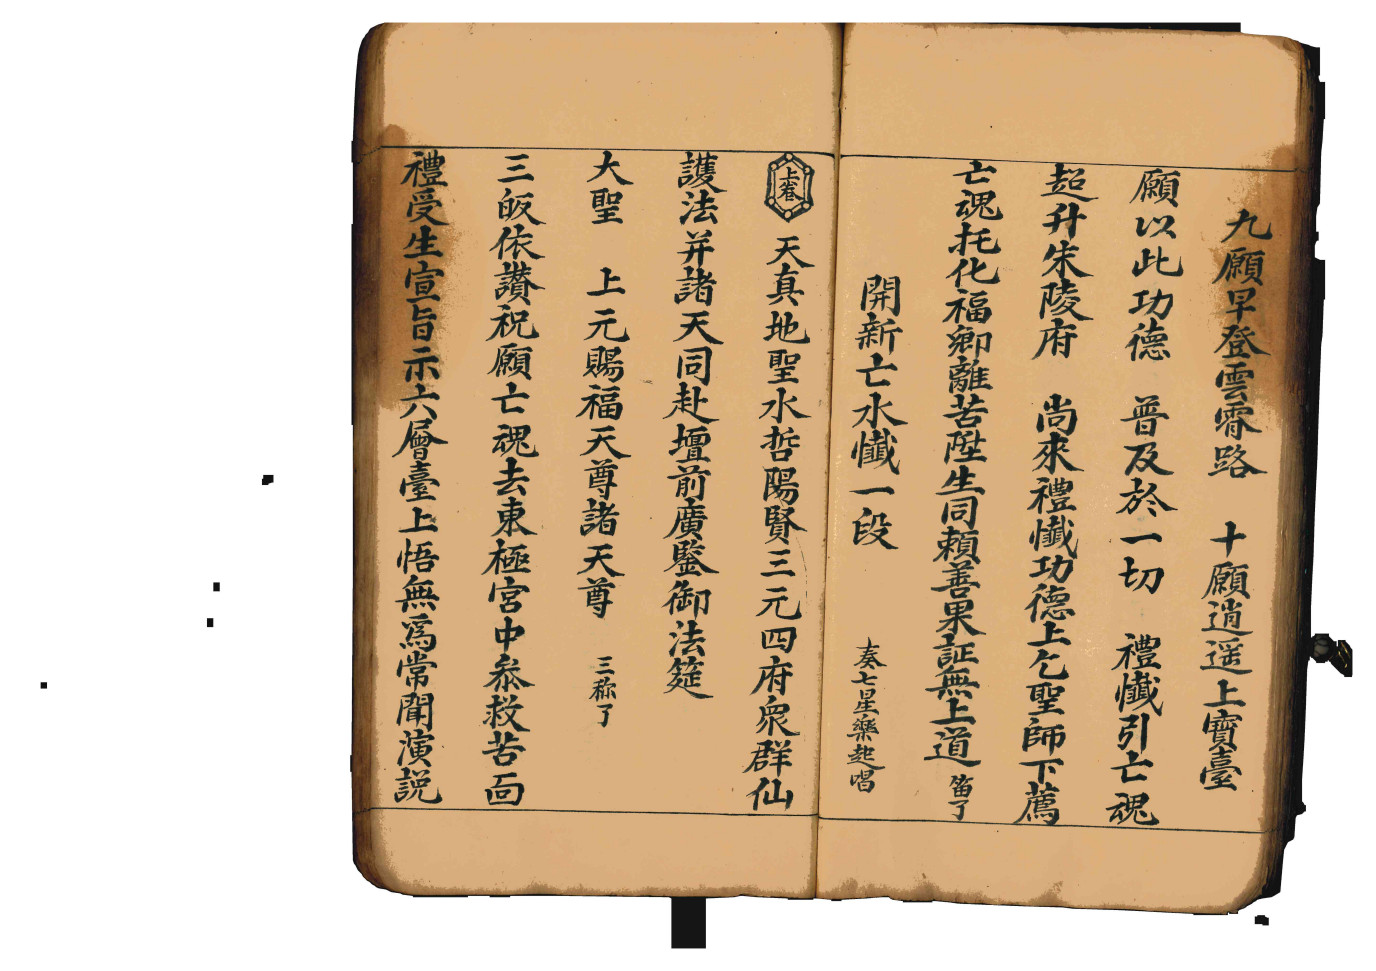 九願早登雲霄路　十願逍遥上寶臺
願以此功德　普及於一切　禮懺引亡魂
超升朱陵府　尚來禮懺功德上乞聖師下薦
亡魂托化福卿離苦陞生同賴善果証無上道 笛了
開新亡水懺一段　奏七星樂起唱
上卷 天真地聖水哲陽賢三元四府衆群仙
護法并諸天同赴壇前廣鑒御法筵
大聖　上元賜福天尊諸天尊 三称了
三皈依讃祝願亡魂去東極宮中叅救苦面
禮受生宣旨示六層臺上悟無爲常聞演説